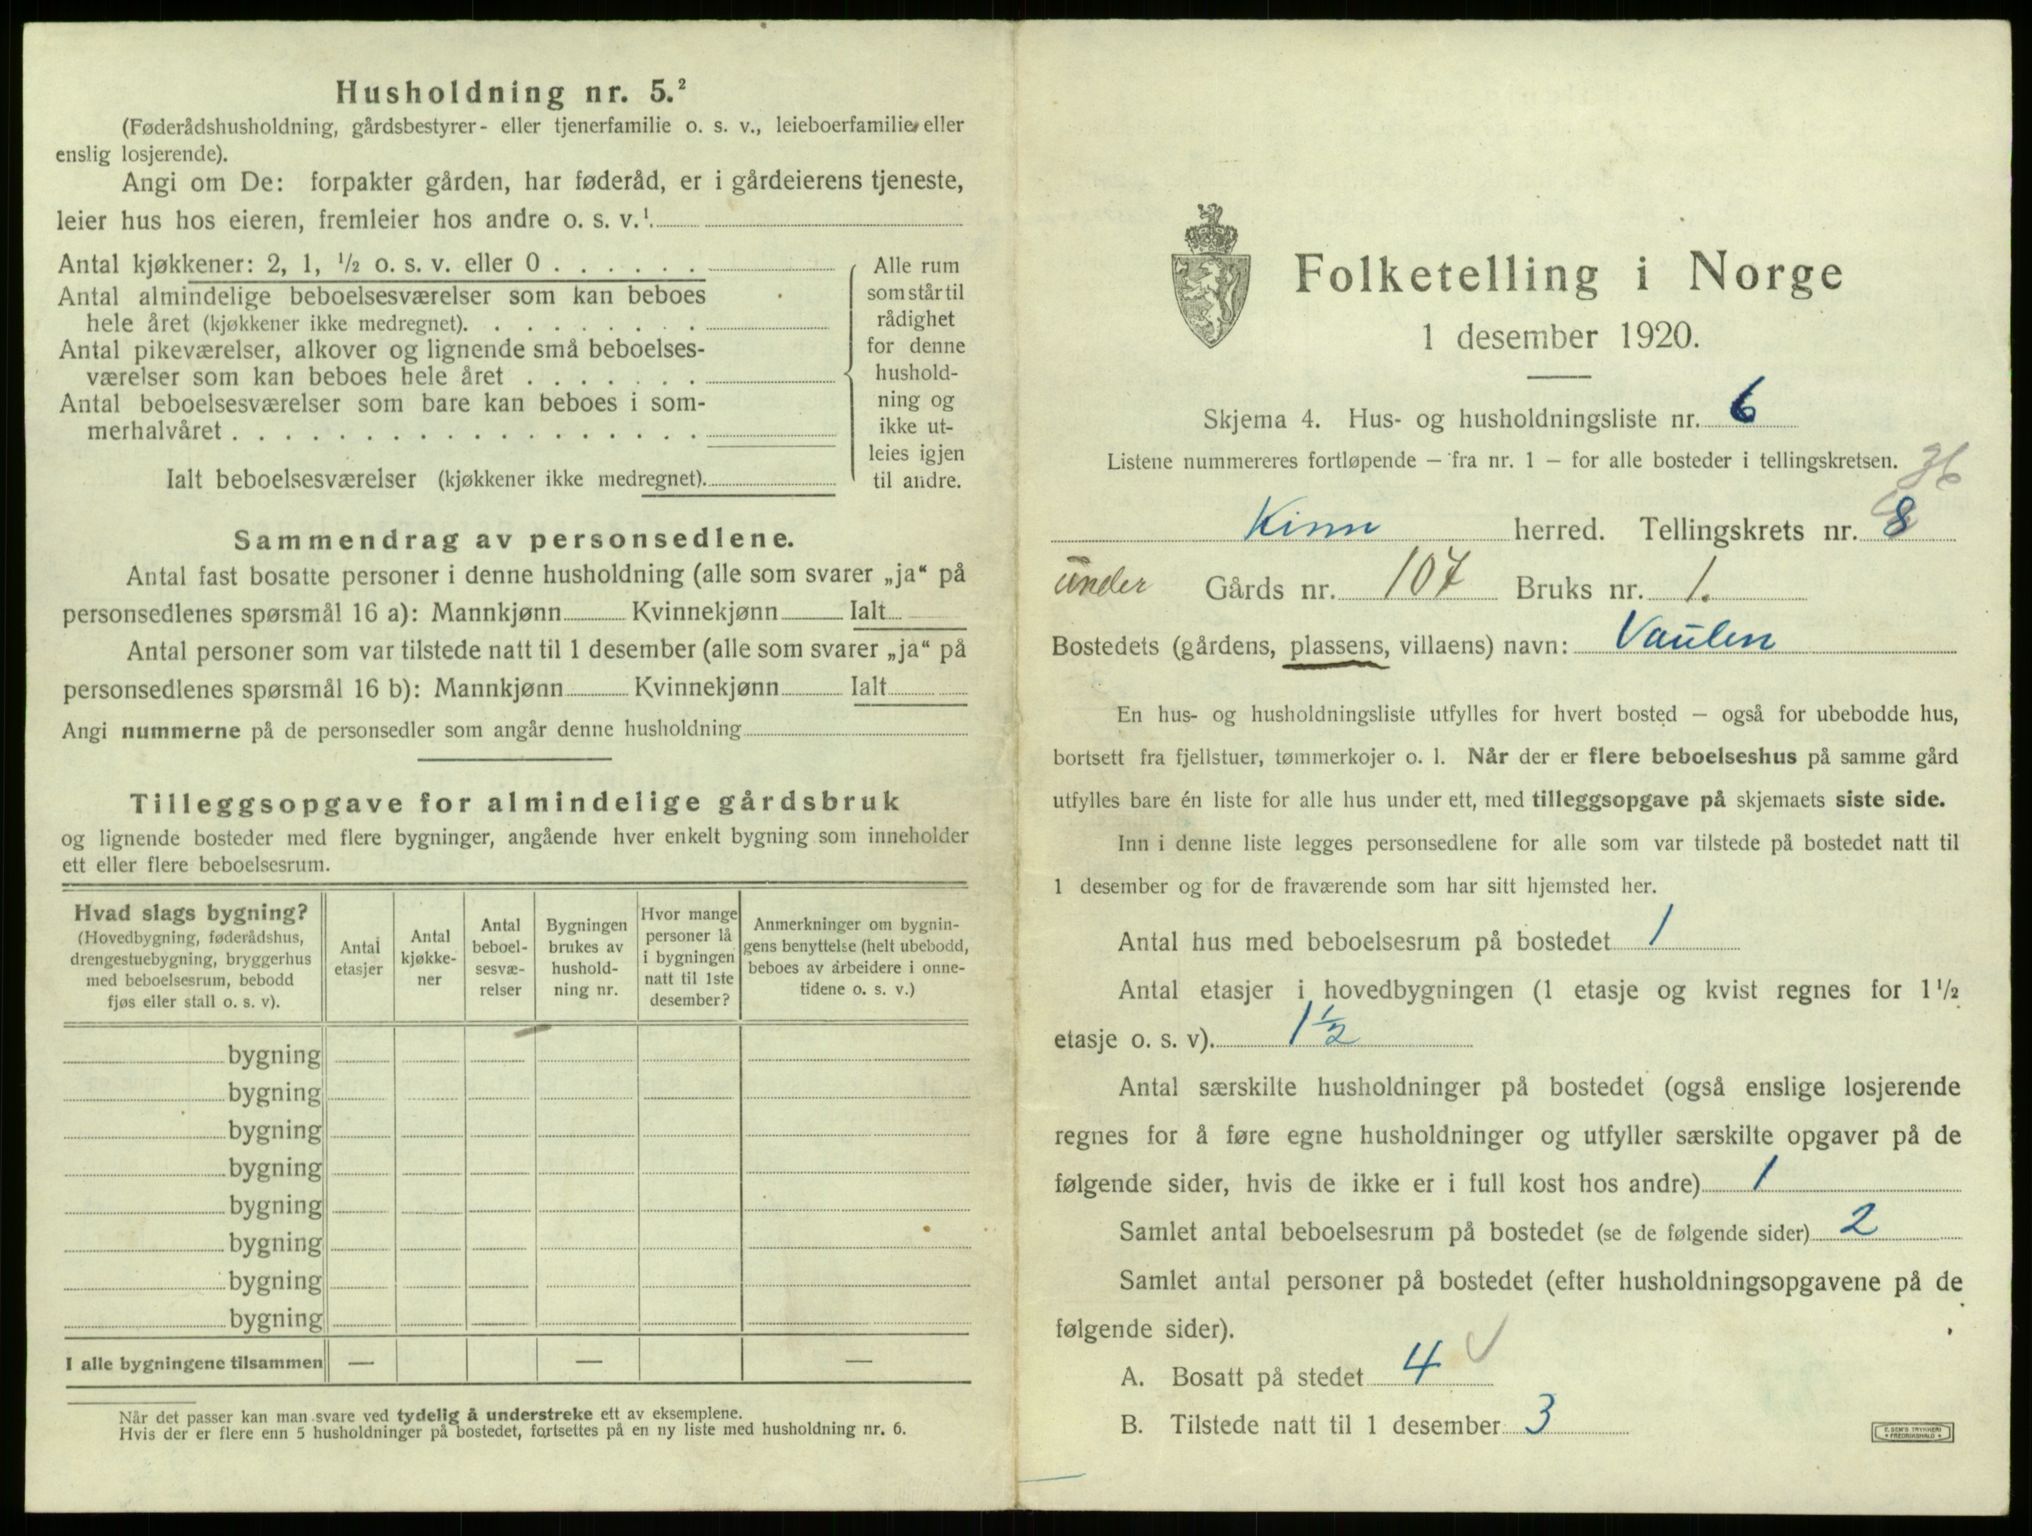 Husholdning nr. 5.²
(Føderådshusholdning, gårdsbestyrer- eller tjenerfamilie o. s. v., leieboerfamilie eller
enslig losjerende).
Angi om De: forpakter gården, har føderåd, er i gårdeierens tjeneste,
leier hus hos eieren, fremleier hos andre o. s. v.¹
Antal kjøkkener: 2, 1, ½ o. s. v. eller 0 . . . . . .
Antal almindelige beboelsesværelser som kan beboes
hele året (kjøkkener ikke medregnet). . . . . . . . .
Antal pikeværelser, alkover og lignende små beboelses-
værelser som kan beboes hele året . . . . . . .
Antal beboelsesværelser som bare kan beboes i som-
merhalvåret . . . . . . . . . . . . . . . . . .
Ialt beboelsesværelser (kjøkkener ikke medregnet).
Alle rum
som står til
rådighet
for denne
hushold-
ning og
ikke ut-
leies igjen
til andre.
Sammendrag av personsedlene.
Antal fast bosatte personer i denne husholdning (alle som svarer „ja“ på
personsedlenes spørsmål 16 a): Mannkjønn Kvinnekjønn Ialt
Antal personer som var tilstede natt til 1 desember (alle som svarer „ja“ på
personsedlenes spørsmål 16 b): Mannkjønn Kvinnekjønn Ialt
Angi nummerne på de personsedler som angår denne husholdning
Tilleggsopgave for almindelige gårdsbruk
og lignende bosteder med flere bygninger, angående hver enkelt bygning som inneholder
ett eller flere beboelsesrum.
Hvad slags bygning?
(Hovedbygning, føderådshus,
drengestuebygning, bryggerhus
med beboelsesrum, bebodd
fjøs eller stall o. s. v).
Antal
etasjer
Antal
kjøkke-
ner
Antal
beboel-
sesvæ-
relser
Bygningen
brukes av
hushold-
ning nr.
Hvor mange
personer lå
i bygningen
natt til 1ste
desember?
Anmerkninger om bygnin-
gens benyttelse (helt ubebodd,
beboes av arbeidere i onne-
tidene o. s. v.)
bygning
bygning
bygning
bygning
bygning
bygning
bygning
bygning
I alle bygningene tilsammen — — —
Når det passer kan man svare ved tydelig å understreke ett av eksemplene.
Hvis der er flere enn 5 husholdninger på bostedet, fortsettes på en ny liste med husholdning nr. 6.
Folketelling i Norge
1 desember 1920.
Skjema 4. Hus- og husholdningsliste nr. 6
Listene nummereres fortløpende – fra nr. 1 – for alle bosteder i tellingskretsen.
36
Kinn herred. Tellingskrets nr. 8
under Gårds nr. 107 Bruks nr. 1.
Bostedets (gårdens, plassens, villaens) navn: Vaulen
En hus- og husholdningsliste utfylles for hvert bosted – også for ubebodde hus,
bortsett fra fjellstuer, tømmerkojer o. l. Når der er flere beboelseshus på samme gård
utfylles bare én liste for alle hus under ett, med tilleggsopgave på skjemaets siste side.
Inn i denne liste legges personsedlene for alle som var tilstede på bostedet natt til
1 desember og for de fraværende som har sitt hjemsted her.
Antal hus med beboelsesrum på bostedet 1
Antal etasjer i hovedbygningen (1 etasje og kvist regnes for 1½
etasje o. s. v). 1½
Antal særskilte husholdninger på bostedet (også enslige losjerende
regnes for å føre egne husholdninger og utfyller særskilte opgaver på de
følgende sider, hvis de ikke er i full kost hos andre) 1
Samlet antal beboelsesrum på bostedet (se de følgende sider) 2
Samlet antal personer på bostedet (efter husholdningsopgavene på de
følgende sider).
A. Bosatt på stedet 4 ✓
B. Tilstede natt til 1 desember 3
E. SEM'S TRYKKERI
FREDRIKSHALD